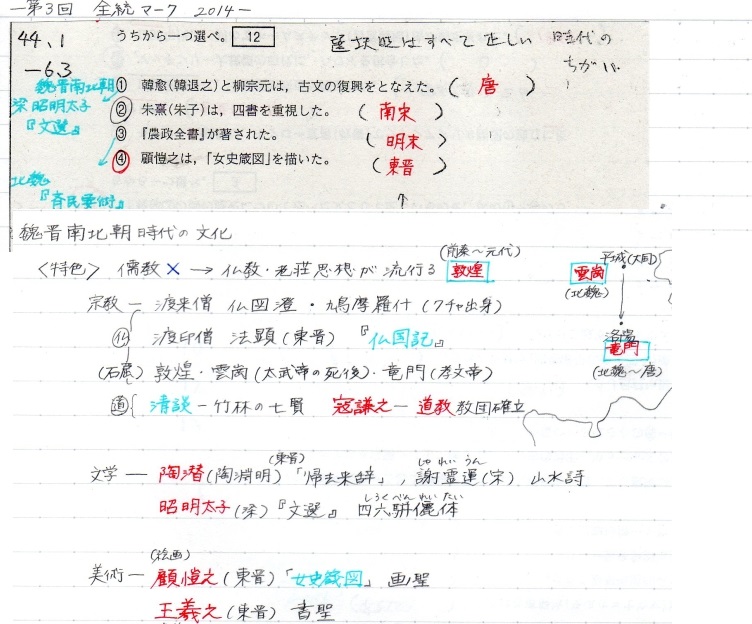 ―第3回 全統マーク 2014―
44.1
うちから一つ選べ。 12
選択肢はすべて正しい 時代の
ちがい
-6.3
① 韓愈(韓退之)と柳宗元は,古文の復興をとなえた。(唐)
② 朱熹(朱子)は,四書を重視した。(南宋)
③ 『農政全書』が著された。(明末)
④ 顧愷之は,「女史箴図」を描いた。(東晋)
魏晋南北朝
梁 昭明太子
『文選』
北魏
『斉民要術』
↑
魏晋南北朝時代の文化
<特色> 儒教 × → 仏教・老荘思想が流行る
(前秦~元代)
敦煌
雲崗
(北魏)
平城(大同)
洛陽
竜門
(北魏~唐)
宗教 ― 渡来僧 仏図澄・鳩摩羅什 (クチャ出身)
仏 渡印僧 法顕(東晋) 『仏国記』
(石窟) 敦煌・雲崗(太武帝の死後)・竜門(孝文帝)
道 清談 ― 竹林の七賢 寇謙之 ― 道教 教団確立
文学 ― 陶潜(陶淵明)(東晋)「帰去来辞」, 謝霊運(宋) 山水詩
しゃ れい うん
昭明太子(梁)『文選』 四六駢儷体
しろくべんれいたい
(絵画)
美術 ― 顧愷之(東晋)「女史箴図」 画聖
王羲之(東晋) 書聖